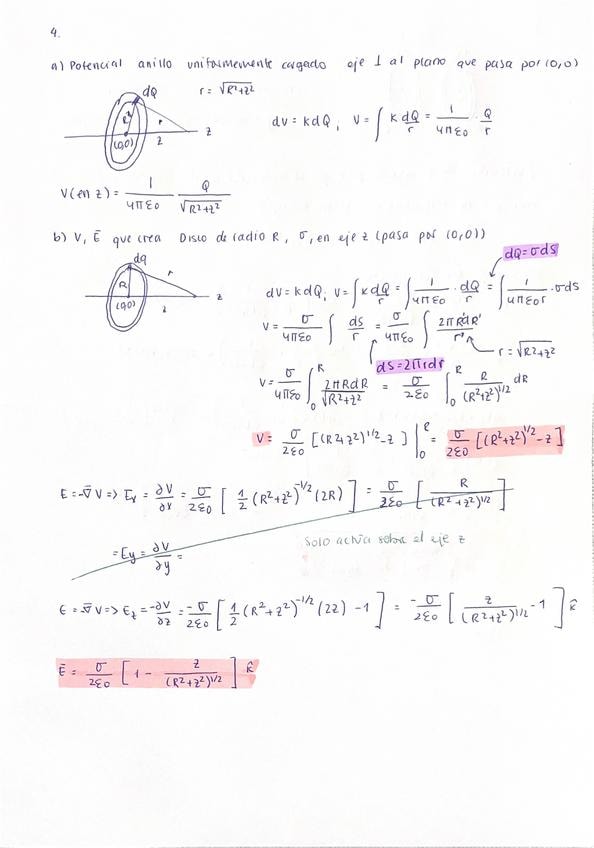 4.
a) Potencial anillo uniformemente cargado eje ⊥ al plano que pasa por (0,0)
dQ r = √R²+z²
R r
(0,0) z z
dV = K dQ; V = ∫ K dQ/r = 1/4πε0 · Q/r
V(en z) = 1/4πε0 Q/√R²+z²
b) V, Ē que crea Disco de radio R, σ, en eje z (pasa por (0,0))
dQ = σds
dq
R r
(0,0) z z
dV = K dQ; V = ∫ K dQ/r = ∫ 1/4πε0 · dQ/r = ∫ 1/4πε0r · σds
V = σ/4πε0 ∫ ds/r = σ/4πε0 ∫ 2πR'dR'/r'
r = √R²+z²
ds = 2πrdr
V = σ/4πε0 ∫₀ᴿ 2πRdR/√R²+z² = σ/2ε0 ∫₀ᴿ R/(R²+z²)^1/2 dR
V = σ/2ε0 [(R²+z²)^1/2 - z] |₀ᴿ = σ/2ε0 [(R²+z²)^1/2 - z]
E = -∇̄ V => Ex = ∂V/∂x = σ/2ε0 [ 1/2 (R²+z²)^-1/2 (2R) ] = σ/2ε0 [ R/(R²+z²)^1/2 ]
= Ey = ∂V/∂y =
Solo actúa sobre el eje z
E = -∇̄ V => Ez = -∂V/∂z = -σ/2ε0 [ 1/2 (R²+z²)^-1/2 (2z) - 1 ] = -σ/2ε0 [ z/(R²+z²)^1/2 - 1 ] k̂
Ē = σ/2ε0 [ 1 - z/(R²+z²)^1/2 ] k̂